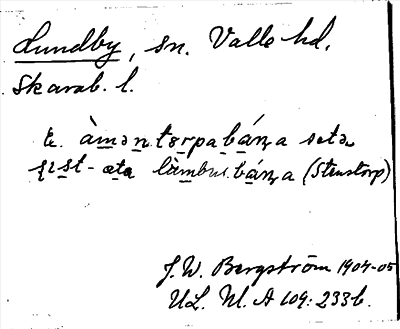 Lundby, sn. Valle hd.
Skarab. l.
te. àmantərpabána sətə
sɪst-æta làmbusbána (Stenstorp)
J. W. Bergström 1904-05
UL. Nl. A 109: 233 b.